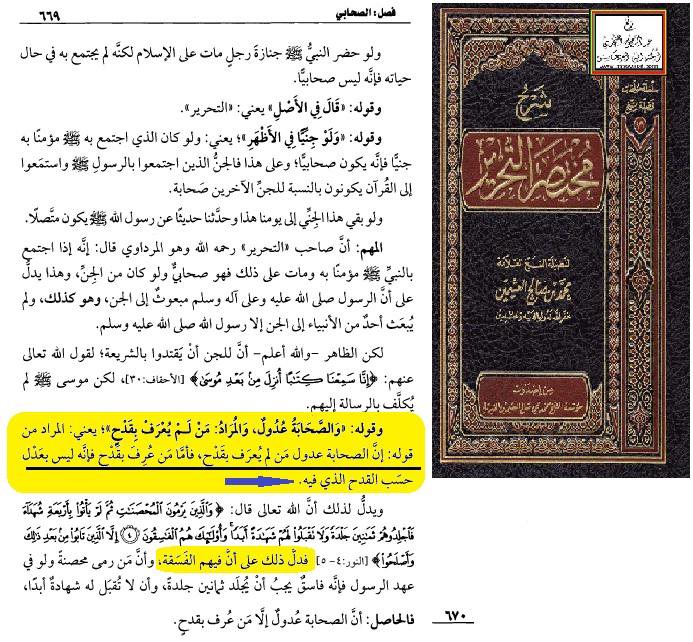 فصل: الصحابي
٦٦٩
ولو حضر النبيُّ ﷺ جنازةَ رجلٍ مات على الإسلام لكنَّه لم يجتمع به في حال
حياته فإنَّه ليس صحابيًّا.
وقوله: «قَالَ فِي الأَصْلِ» يعني: «التحرير».
وقوله: «وَلَوْ جِنِّيًّا فِي الأَظْهَرِ»؛ يعني: ولو كان الذي اجتمع به ﷺ مؤمنًا به
جنيًّا فإنَّه يكون صحابيًّا؛ وعلى هذا فالجنُّ الذين اجتمعوا بالرسولِ ﷺ واستمَعوا
إلى القُرآن يكونون بالنسبة للجنِّ الآخرين صَحابة.
ولو بقي هذا الجِنِّي إلى يومنا هذا وحدَّثنا حديثًا عن رسول الله ﷺ يكون متَّصلًا.
المهم: أنَّ صاحب «التحرير» رحمه الله وهو المرداوي قال: إنَّه إذا اجتمع
بالنبيِّ ﷺ مؤمنًا به ومات على ذلك فهو صحابيٌّ ولو كان من الجِنِّ، وهذا يدلُّ
على أنَّ الرسول صلى الله عليه وعلى آله وسلم مبعوثٌ إلى الجن، وهو كذلك، ولم
يُبعَث أحدٌ من الأنبياء إلى الجن إلا رسول الله صلى الله عليه وسلم.
لكن الظاهر -والله أعلم- أنَّ للجن أنْ يَقتدوا بالشريعة؛ لقول الله تعالى
عنهم: ﴿إِنَّا سَمِعْنَا كِتَٰبًا أُنزِلَ مِنۢ بَعْدِ مُوسَىٰ﴾ [الأحقاف:٣٠]، لكن موسى لم
يُكلَّف بالرسالة إليهم.
وقوله: «وَالصَّحَابَةُ عُدُولٌ، وَالمُرَادُ: مَنْ لَمْ يُعْرَفْ بِقَدْحٍ»؛ يعني: المراد من
قوله: إنَّ الصحابة عدول مَن لم يُعرَف بقَدْح، فأمَّا مَن عُرِفَ بقَدْح فإنَّه ليس بعَدْل
حسَب القدح الذي فيه.
ويدلُّ لذلك أنَّ الله تعالى قال: ﴿وَالَّذِينَ يَرْمُونَ الْمُحْصَنَٰتِ ثُمَّ لَمْ يَأْتُوا۟ بِأَرْبَعَةِ شُهَدَآءَ
فَاجْلِدُوهُمْ ثَمَٰنِينَ جَلْدَةً وَلَا تَقْبَلُوا۟ لَهُمْ شَهَٰدَةً أَبَدًا وَأُو۟لَٰٓئِكَ هُمُ الْفَٰسِقُونَ ۝ إِلَّا الَّذِينَ تَابُوا۟ مِنۢ بَعْدِ ذَٰلِكَ
وَأَصْلَحُوا۟﴾ [النور:٤-٥] فدلَّ ذلك على أنَّ فيهم الفَسَقة، وأنَّ مَن رمى محصنةً ولو في
عهد الرسول فإنَّه فاسقٌ يجبُ أنْ يُجلَد ثمانين جلدةً، وأن لا تُقبَل له شهادةٌ أبدًا،
٦٧٠
فالحاصل: أنَّ الصحابة عُدولٌ إلَّا مَن عُرف بقدحٍ.
شرح
مختصر التحرير
لفضيلة الشيخ العلامة
محمد بن صالح العثيمين
غفر الله له ولوالديه وللمسلمين